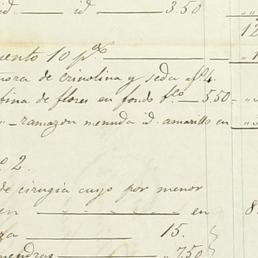 id. id 3.50 "
12
uento 10 p%
nora de crinolina y seda
tina de flores en fondo 5.50
ramazon menuda id. amarillo en
2.
de cirugia cuyo por menor
en en 8
za 15.
mendras " 750